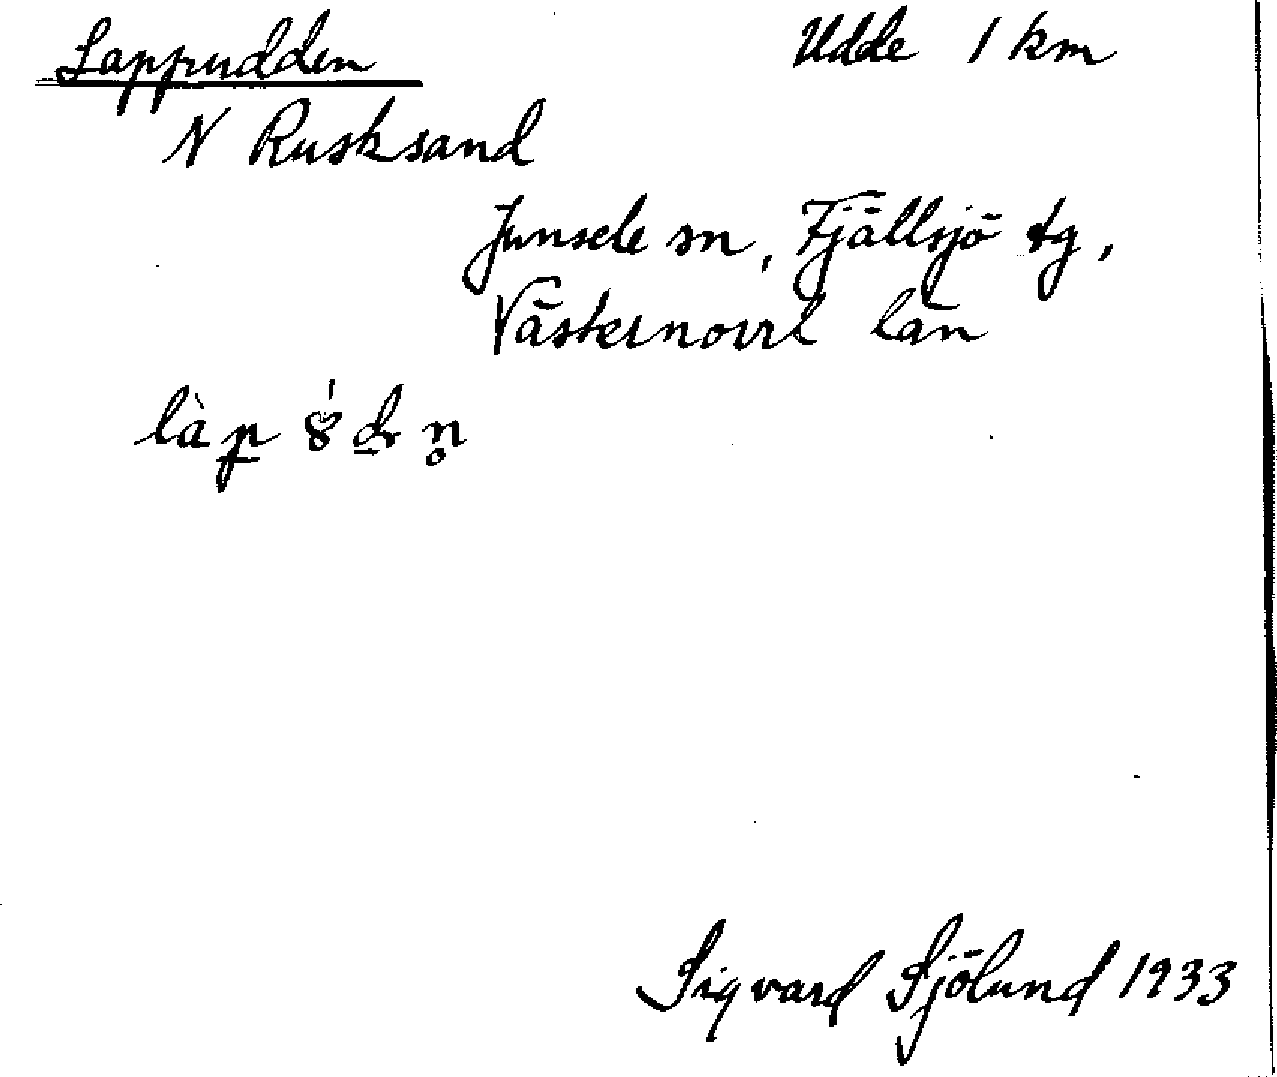 Lappudden Udde 1 km
N Rusksand
Junsele sn, Fjällsjö tg,
Västernorrl län
Sigvard Sjölund 1933